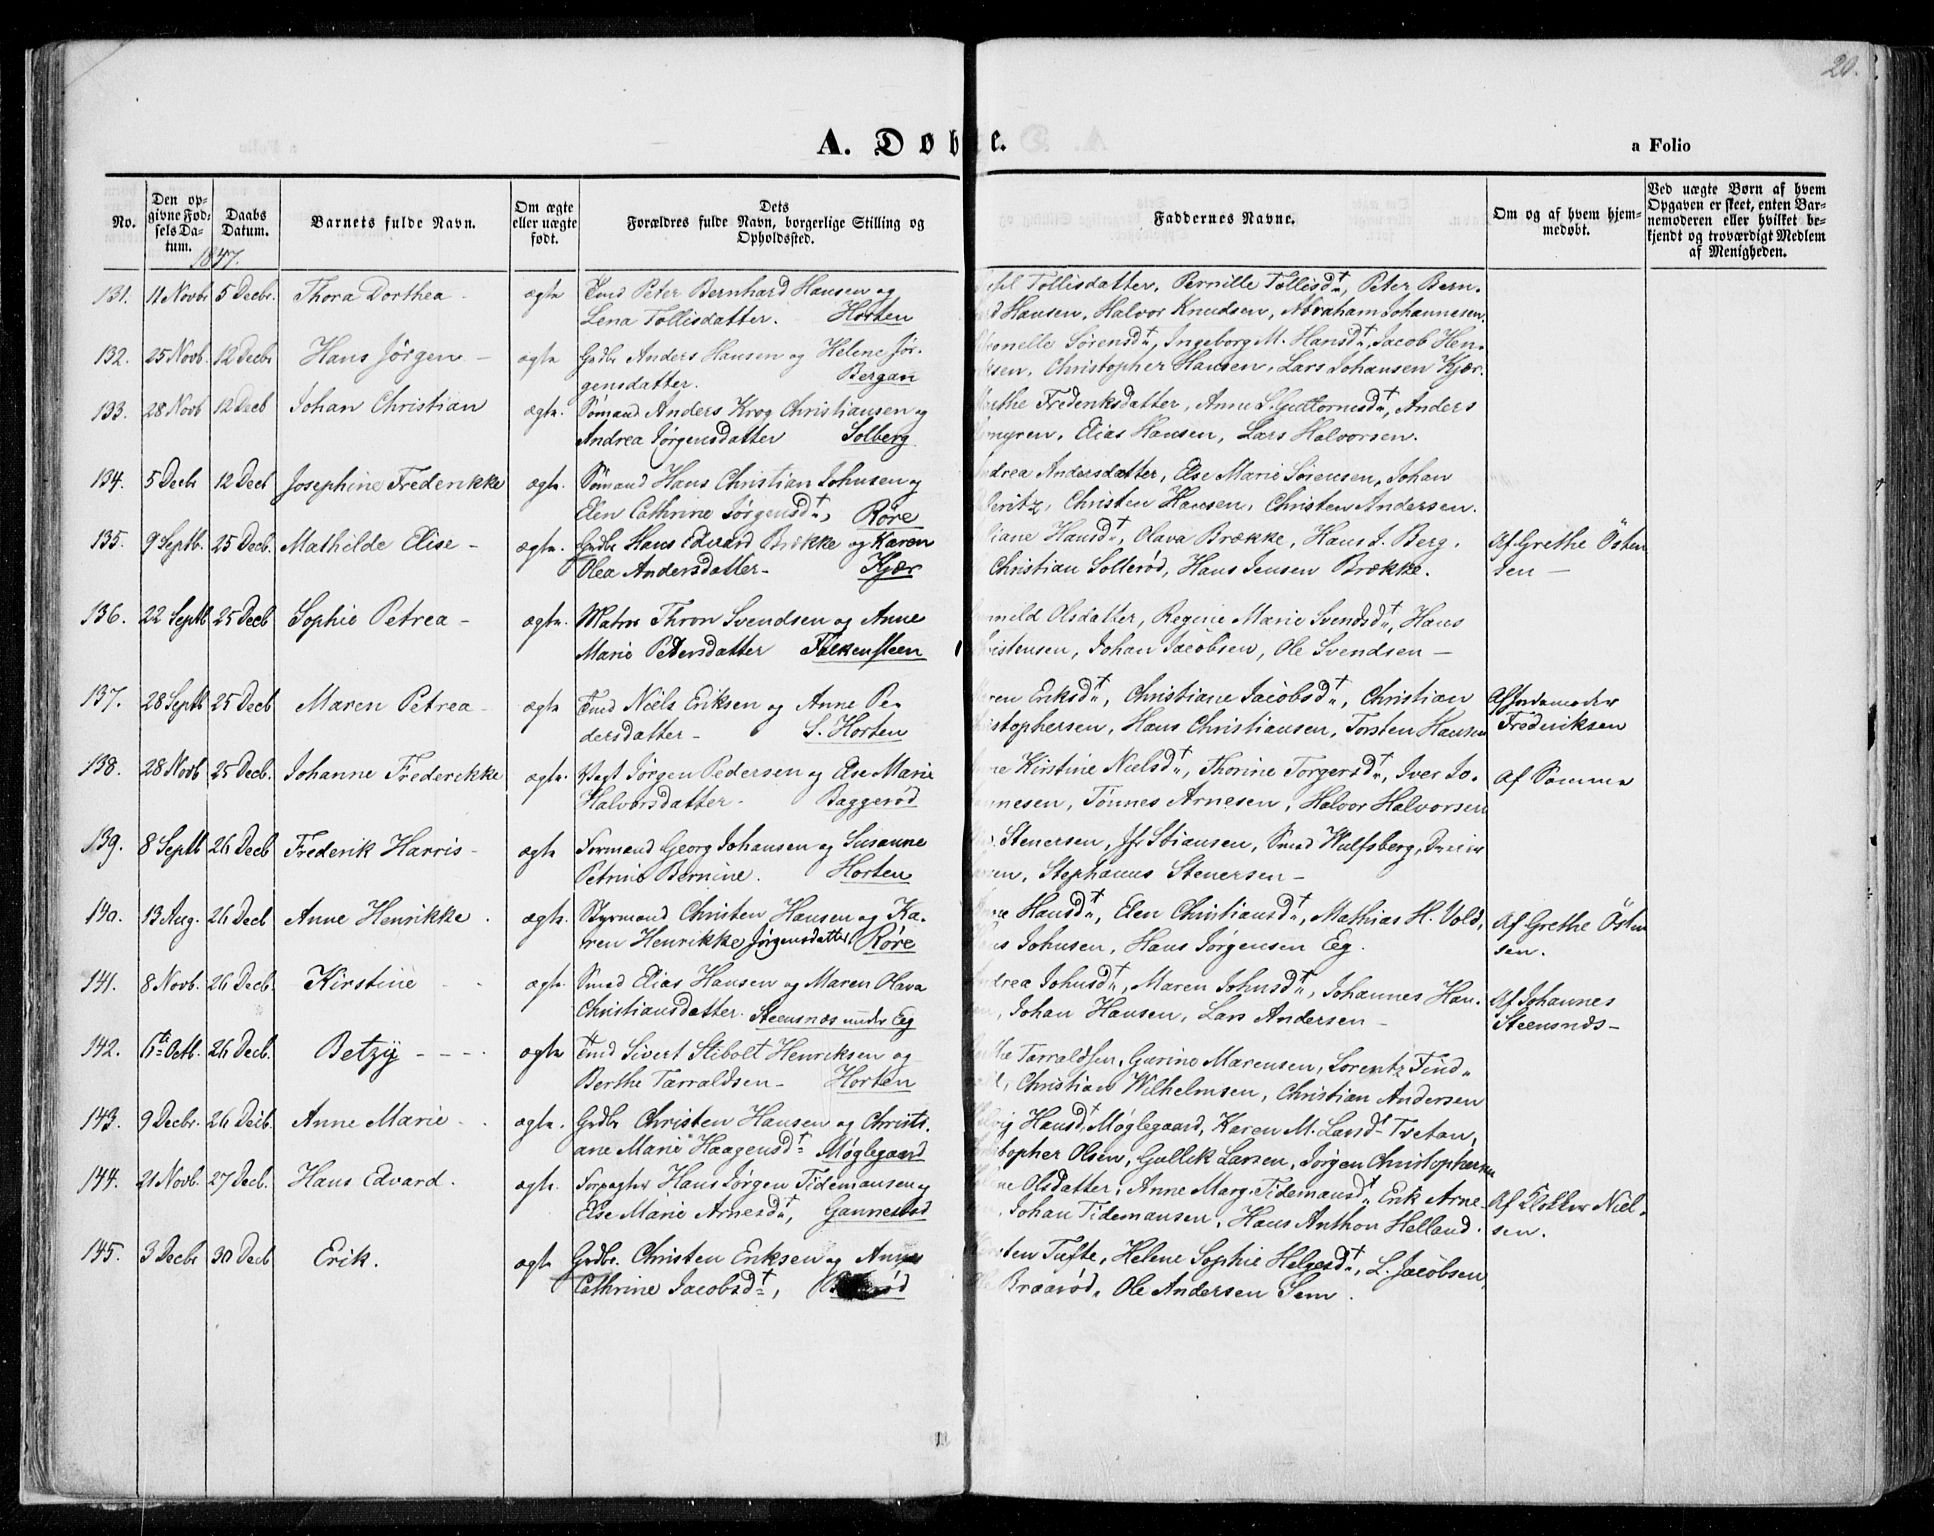 20.
A. Døbte.
a Folio
No.
Den opgivne Fødselsdatum.
Daabs Datum.
Barnets fulde Navn.
Om ægte eller uægte født.
Dets Forældres fulde Navn, borgerlige Stilling og Opholdssted.
Faddernes Navne.
Om og af hvem hjemmedøbt.
Ved uægte Børn af hvem Opgaven er skeet, enten Barnemoderen eller hvilket bekjendt og troværdigt Medlem af Menigheden.
1847.
131. 11 Novbr 5 Decbr. Thora Dorthea ægte Tmd Peter Bernhard Hansen og Tollisdatter, Pernille Tollisd., Peter Bern-
Lena Tollisdatter. Horten Hansen, Halvor Knudsen, Abraham Johannesen.
132. 25 Novb. 12 Decbr Hans Jørgen ægte Gdbr Anders Hansen og Helene Jør- Sørensd., Ingeborg M. Hansd., Jacob Hen-
gensdatter. Bergan Christopher Hansen, Lars Johansen Kjær.
133. 28 Novb 12 Decb Johan Christian ægte. Sømand Anders Krog Christiansen og Frederiksdatter, Anne L. Guttormsd., Anders
Andrea Jørgensdatter Solberg Elias Hansen, Lars Halvorsen.
134. 5 Decb 12 Decb Josephine Frederikke ægte. Sømand Hans Christian Johnsen og Andersdatter, Else Marie Sørensen, Johan
Elen Cathrine Jørgensd., Røre Christen Hansen, Christen Andersen.
135. 9 Septb. 25 Decb. Mathilde Elise ægte. Gdbr Hans Edvard Brække og Karen Hansd., Olava Brække, Hans J. Berg. Af Grethe Östen
Olea Andersdatter Kjær Christian Sollerød, Hans Jensen Brække. sen
136. 22 Septb 25 Decb Sophie Petrea ægte. Matros Thron Svendsen og Anne Olsdatter, Regine Marie Svendsd., Hans
Marie Pedersdatter Falkensteen Johan Jacobsen, Ole Svendsen
137. 28 Septb 25 Decb Maren Petrea ægte Tmd Niels Eriksen og Anne Pe- Eriksd., Christiane Jacobsd., Christian Af Jordemoder
dersdatter S. Horten Hans Christiansen, Torsten Hansen Frederiksen
138. 28 Novb 25 Decb. Johanne Frederikke ægte. Vagt Jørgen Pedersen og Else Marie Kirstine Nielsd., Thorine Torgersd., Iver Jo- Af Samme
Halvorsdatter. Baggerød Tønnes Arnesen, Halvor Halvorsen
139. 8 Septb 26 Decb Frederik Harris ægte Formand Georg Johansen og Susanne Stenersen, Jfr Stiansen, Smed Wulfsberg,
Petrine Bernine. Horten Stephanus Stenersen
140. 13 Aug. 26 Decb Anne Henrikke ægte. Styrmand Christen Hansen og Ka- Hansd., Elen Christiansd., Mathias H. Vold, Af Grethe Östen
ren Henrikke Jørgensdatter Røre Johnsen, Hans Jørgensen Eeg. sen.
141. 8 Novb. 26 Decb. Kirstine ægte Smed Elias Hansen og Maren Olava Johnsd., Maren Johnsd., Johannes Han- Af Johannes
Christiansdatter. Steensnæs under Eeg Johan Hansen, Lars Andersen Steensnæs
142. 6te Octb. 26 Decb. Betzy ægte Tmd Sivert Stibolt Henriksen og Tarraldsen, Gurine Marensen, Lorentz Find-
Berthe Tarraldsen Horten Christian Wilhelmsen, Christian Andersen
143. 9 Decbr. 26 Decb. Anne Marie ægte. Gdbr Christen Hansen og Christi- Hansd. Møglegaard, Karen M. Larsd. Tvetan,
ane Marie Haagensd. Møglegaard Olsen, Gullik Larsen, Jørgen Christophersen
144. 21 Novb. 27 Decb. Hans Edvard. ægte. Forpagter Hans Jørgen Tidemansen og Olsdatter, Anne Marg. Tidemansd. Erik Arne- Af Klokker Niel-
Else Marie Arnesd., Gannestad Johan Tidemansen, Hans Anthon Helland. sen.
145. 3 Decbr 30 Decb Erik. ægte Gdbr. Christen Eriksen og Anne Tufte, Helene Sophie Helgesd., L. Jacobsen,
Cathrine Jacobsd., Braarød, Ole Andersen Sem.